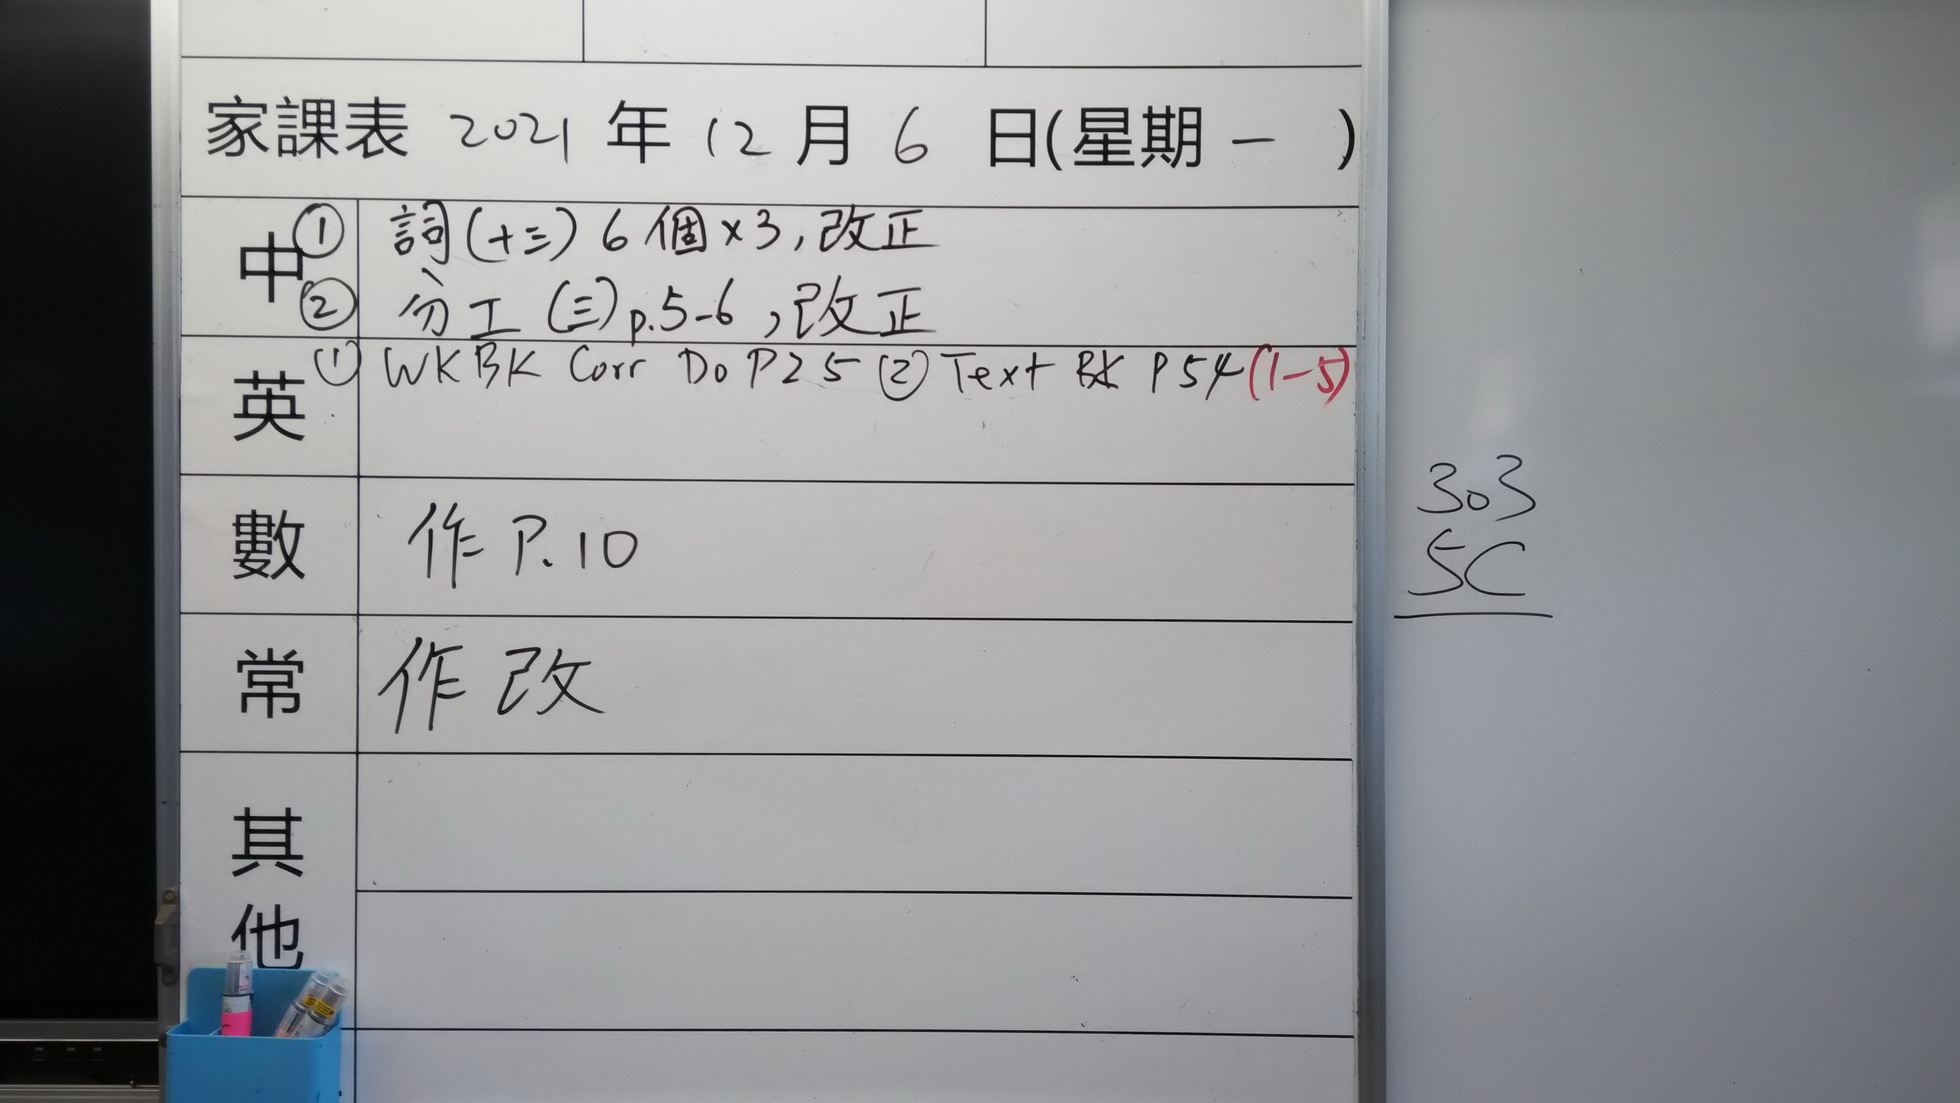 家課表 2021 年 12 月 6 日(星期一 )
中 ① 詞(十三) 6個×3, 改正
② 分工 (三) p.5-6, 改正
英 ① WKBK Corr Do P25 ② Text BK P54 (1-5)
數 作 P.10
常 作改
其他
303
5C